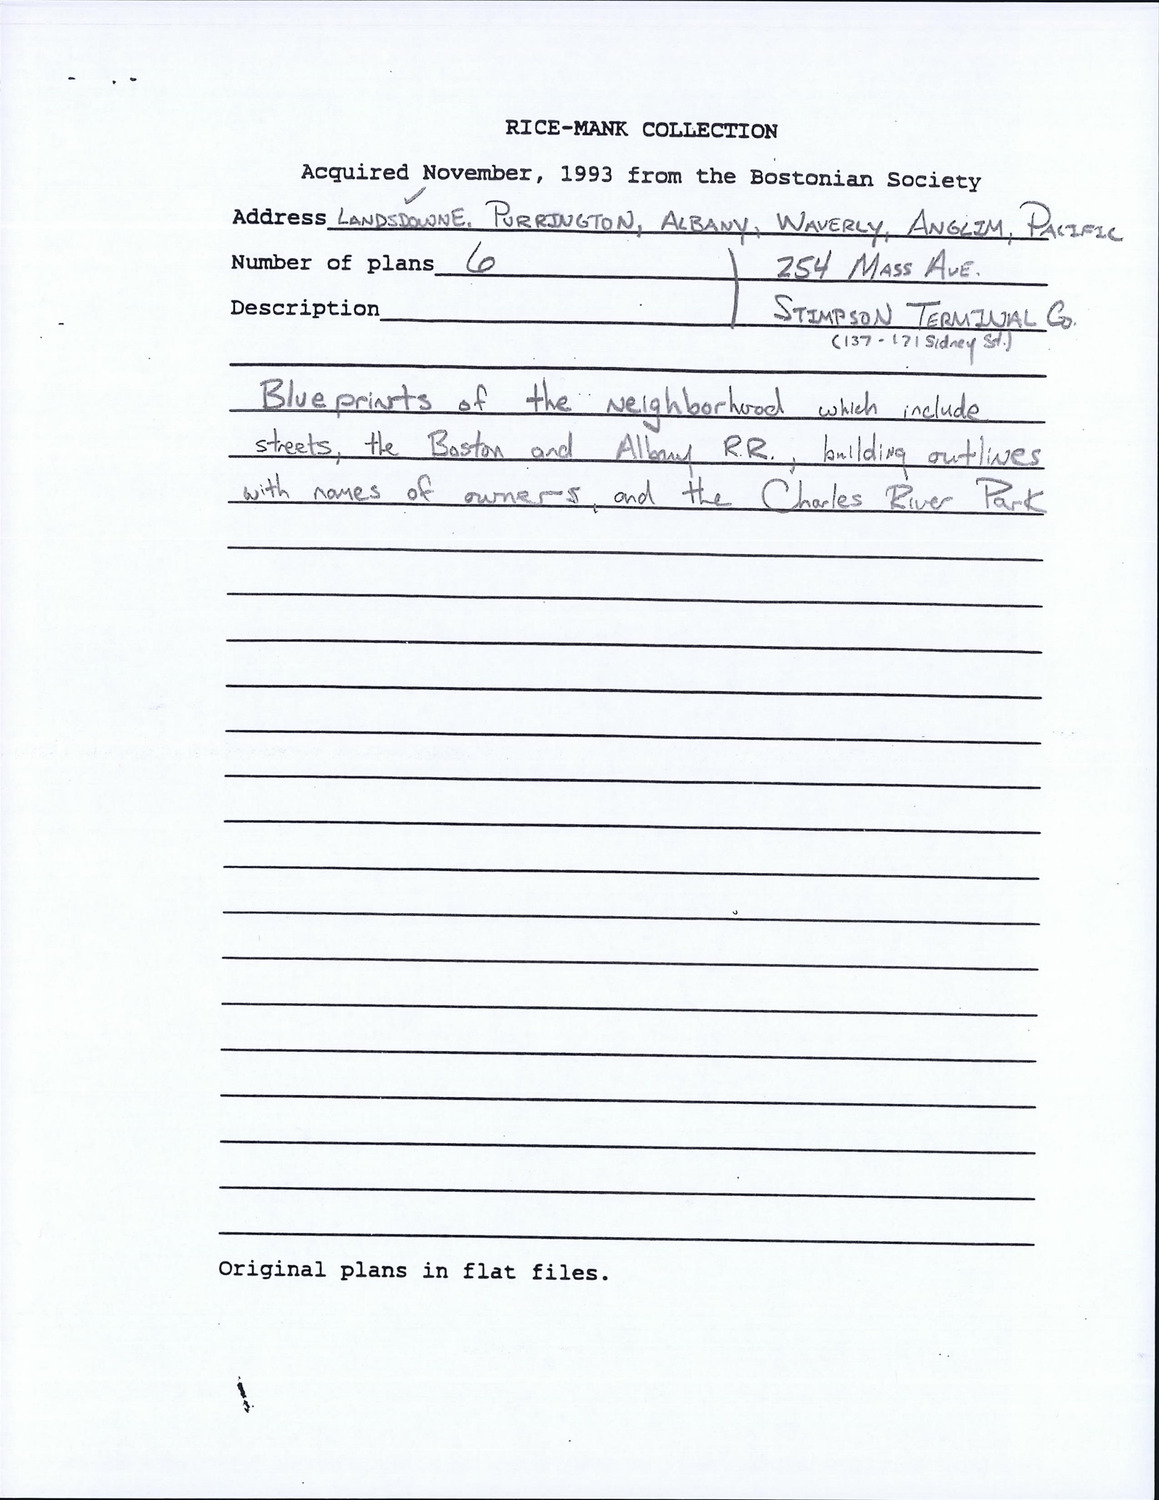 RICE-MANK COLLECTION
Acquired November, 1993 from the Bostonian Society
Address LANDSDOWNE, PURRINGTON, ALBANY, WAVERLY, ANGLIM, PACIFIC
Number of plans 6 254 MASS AVE.
Description STIMPSON TERMINAL Co.
(137-171 Sidney St.)
Blueprints of the neighborhood which include
streets, the Boston and Albany R.R., building outlines
with names of owners, and the Charles River Park
Original plans in flat files.